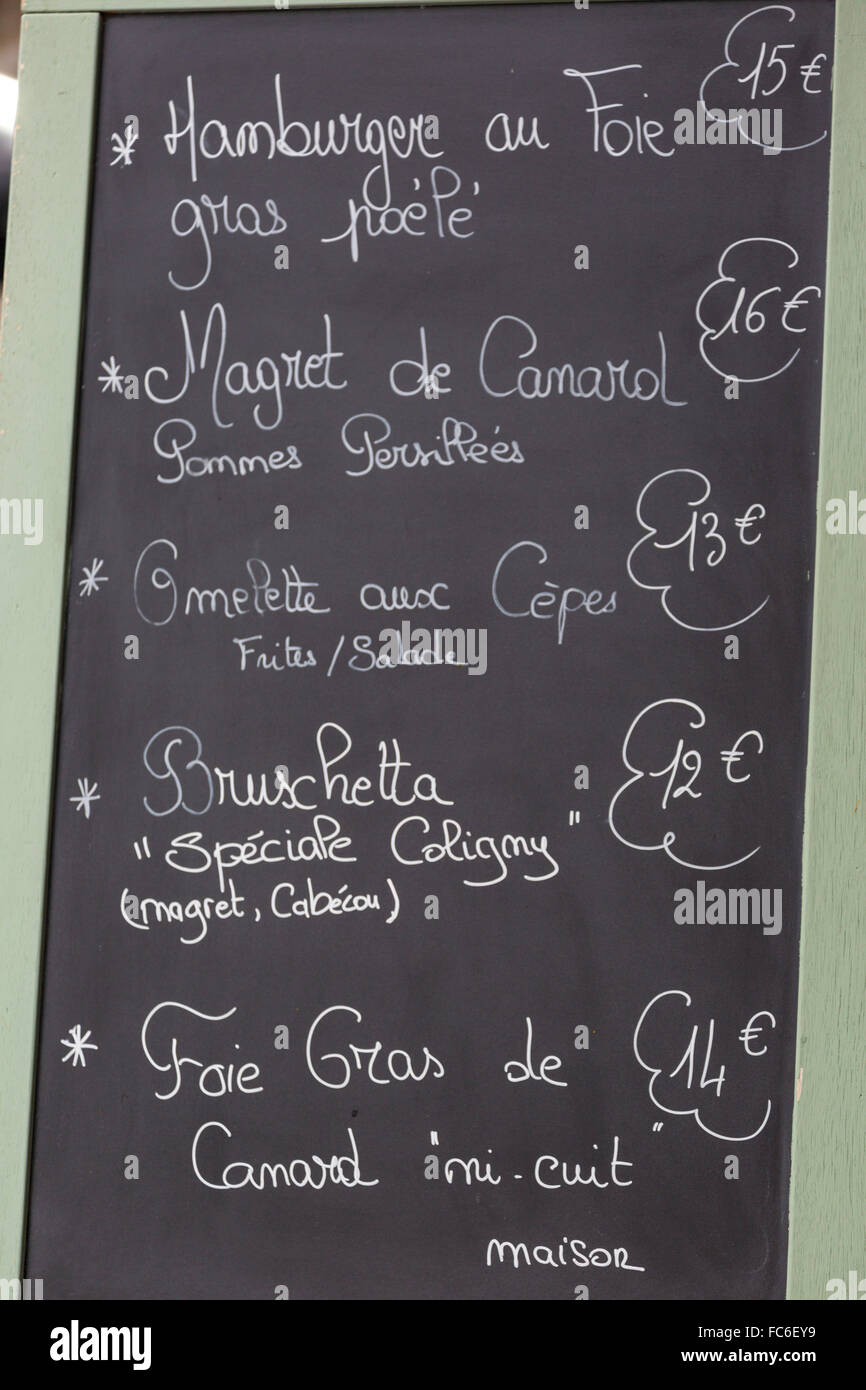 * Hamburger au Foie 15€
gras poêlé
* Magret de Canard 16€
Pommes Persillées
* Omelette aux Cèpes 13€
Frites/Salade
* Bruschetta 12€
"Spéciale Coligny"
(magret, Cabécou)
* Foie Gras de 14€
Canard "mi-cuit"
maison
alamy stock photo
FC6EY9
www.alamy.com